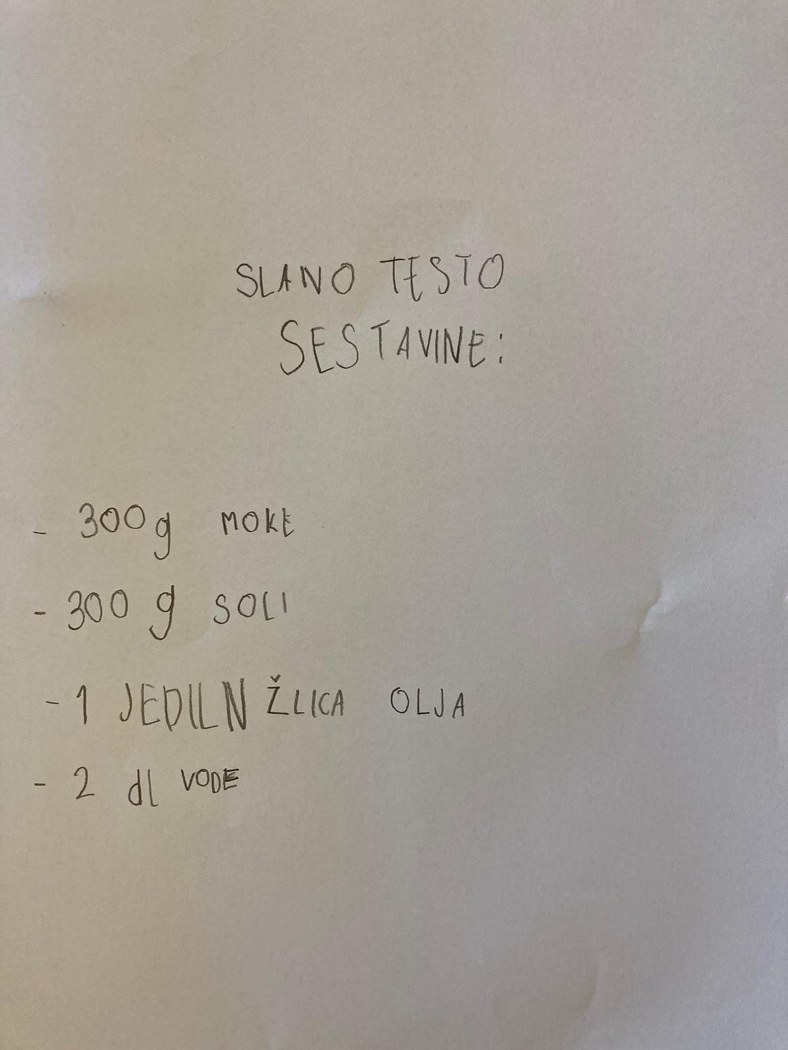 SLANO TESTO
SESTAVINE:
- 300g MOKE
- 300 g SOLI
- 1 JEDILN ŽLICA OLJA
- 2 dl VODE